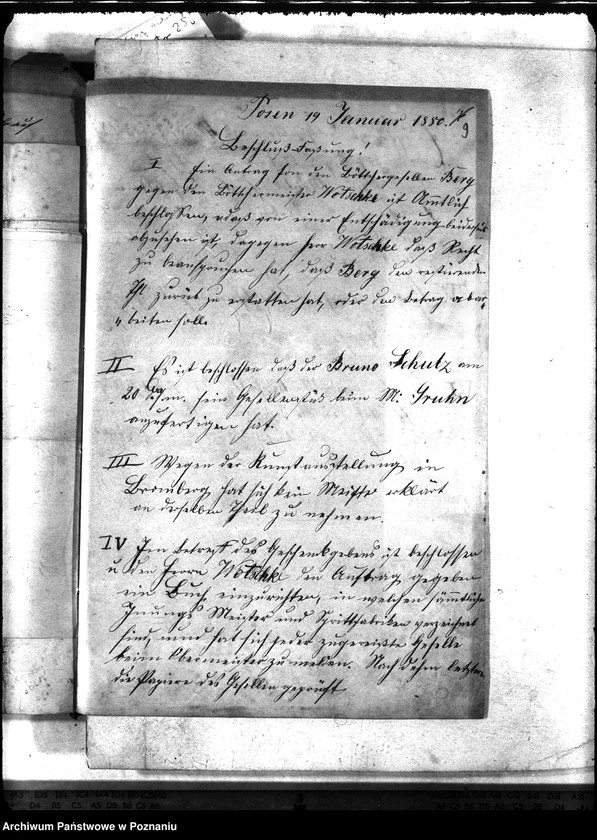 Posen 19 Januar 1880.
9
Beschluß-Faßung!
I Ein Antrag von den Böttchergesellen Berg
gegen den Böttchermeister Wotschke ist Amtlich
beschloßen, daß von einer Entschädigung beiderseits
abzusehen ist, dagegen Herr Wotschke daß Recht
zu beanspruchen hat, daß Berg den restirenden
zurück zu erstatten hat, oder den Betrag abar-
beiten solle
II Es ist beschlossen daß der Bruno Schulz am
20 d. m. sein Gesellenstück beim M: Gruhn
anzufertigen hat.
III Wegen der Kunstausstellung in
Bromberg hat sich kein Meister erklärt
an derselben Theil zu nehmen.
IV Im betreff des Geschenkgebens ist beschlossen
u den Herrn Wotschke den Auftrag gegeben
ein Buch einzurichten, in welchen sämmtliche
Innungs Meister und Spritfabriken verzeichnet
sind, und hat sich jeder zugereißte Geselle
beim Obermeister zu melden. Nach dehm letztere
die Papiere des Gesellen geprüft
Archiwum Państwowe w Poznaniu